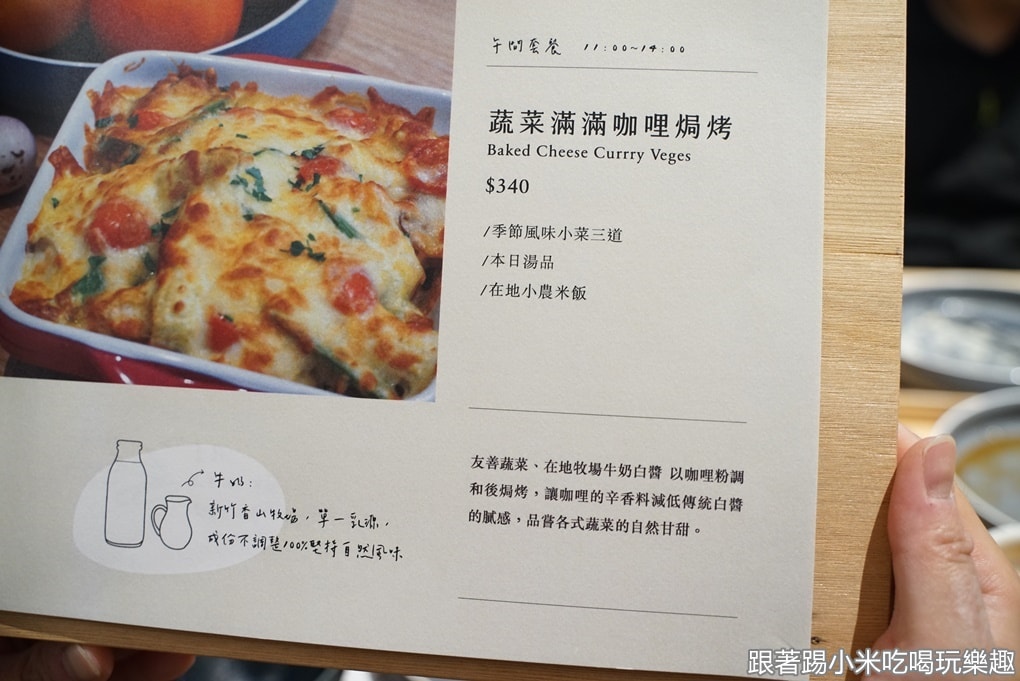 午間套餐 11:00~14:00
蔬菜滿滿咖哩焗烤
Baked Cheese Currry Veges
$340
/季節風味小菜三道
/本日湯品
/在地小農米飯
友善蔬菜、在地牧場牛奶白醬 以咖哩粉調
和後焗烤，讓咖哩的辛香料減低傳統白醬
的膩感，品嘗各式蔬菜的自然甘甜。
牛奶：
新竹香山牧場，單一乳源，
成份不調整100%堅持自然風味
跟著踢小米吃喝玩樂趣